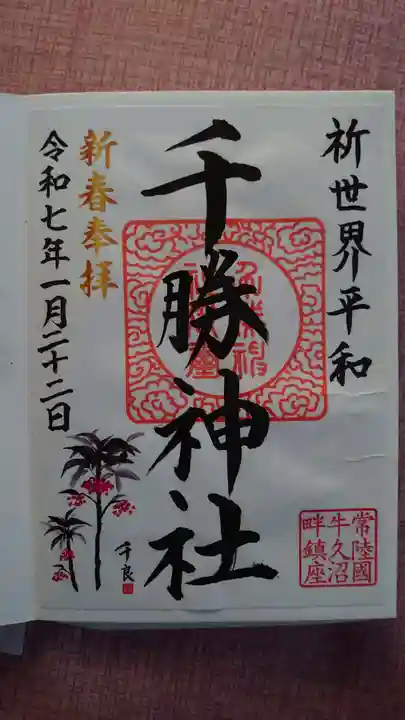 祈世界平和
千勝神社
新春奉拝
令和七年一月二十二日
常陸國
牛久沼
畔鎮座
千良